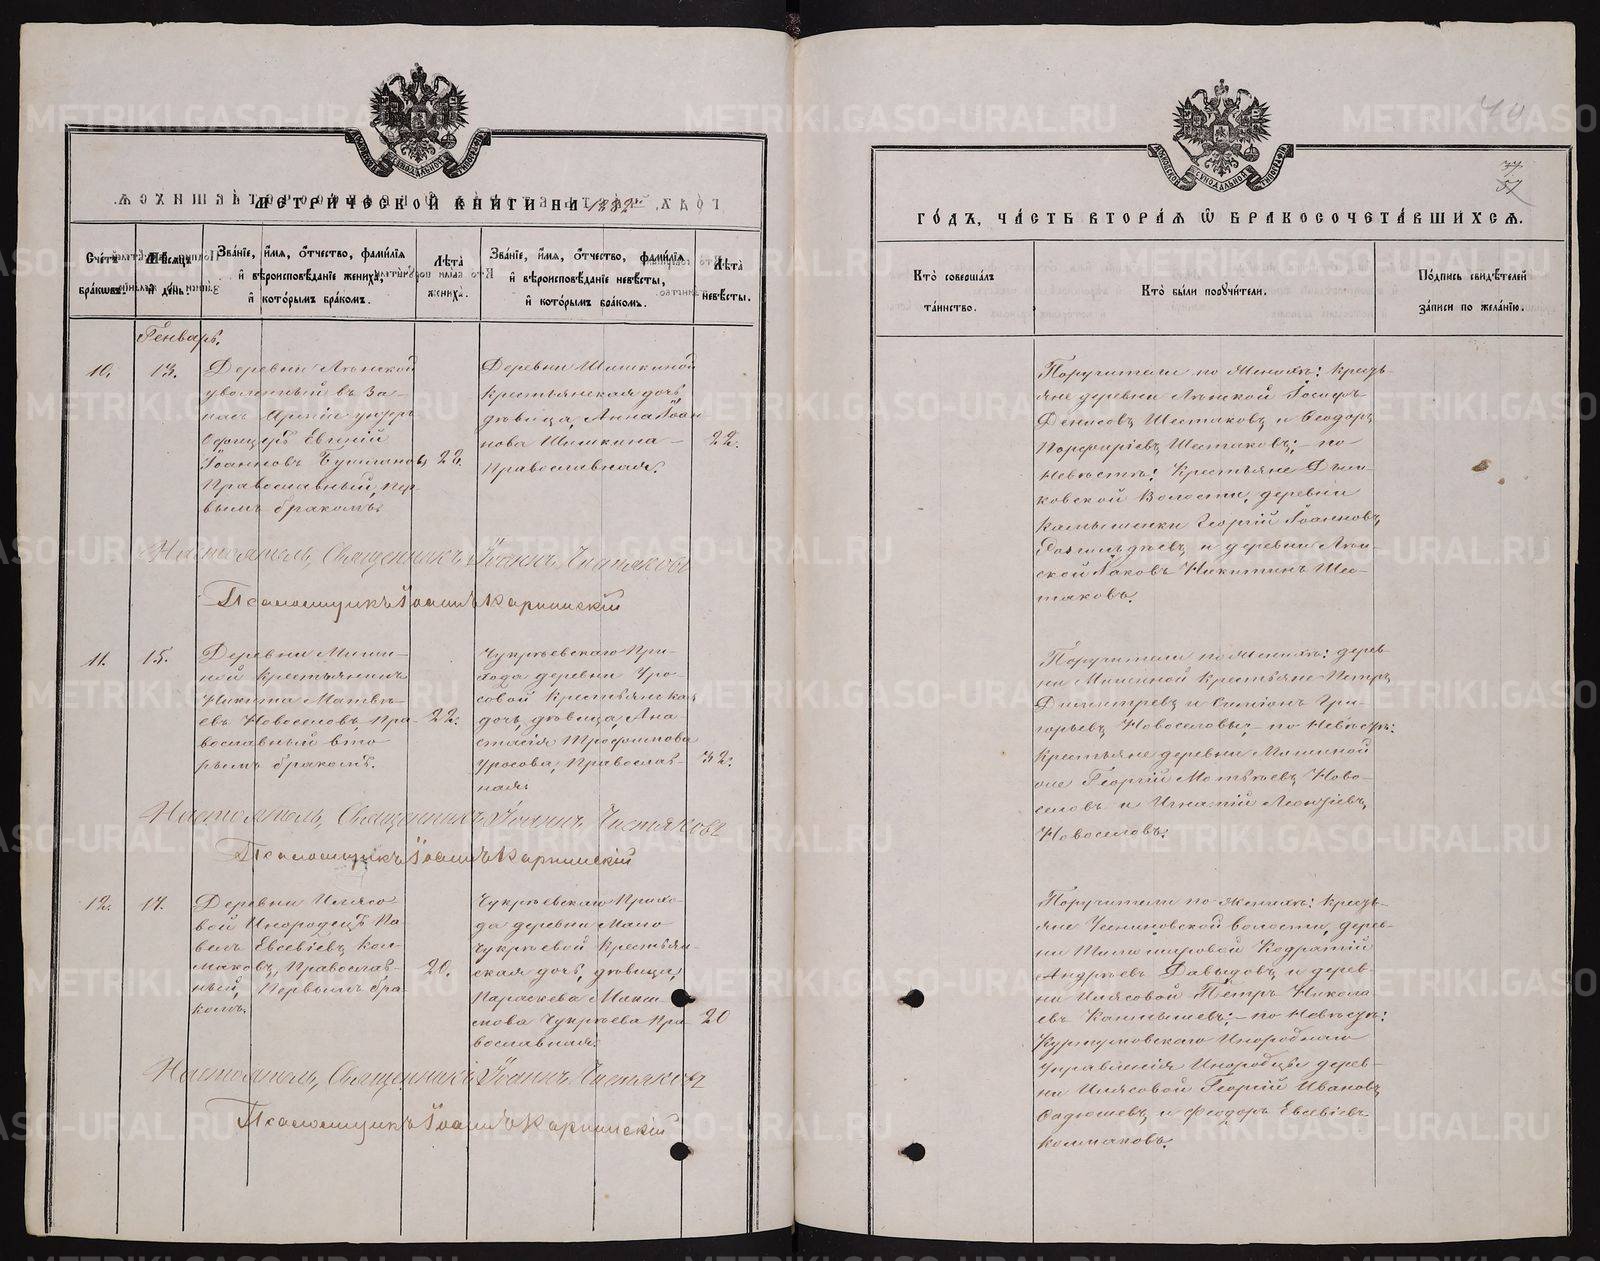 МЕТРИЧЕСКОЙ КНИГИ НА 1882
Счетъ браковъ.
Мѣсяцъ и день.
Званіе, имя, отчество, фамилія и вѣроисповѣданіе жениха, и которымъ бракомъ.
Лѣта жениха.
Званіе, имя, отчество, фамилія и вѣроисповѣданіе невѣсты, и которымъ бракомъ.
Лѣта невѣсты.
Генварь.
10.
13.
Деревни
уволенный въ За-
пасъ Арміи унтеръ
Офицеръ Евгеній
Іоанновъ
Православный, пер-
вымъ бракомъ.
22.
Деревни Шишкиной
крестьянская дочь
дѣвица, Анна Іоан
нова Шишкина –
Православная.
22.
Настоятель, Священникъ Іоаннъ Чистяковъ
Псаломщикъ Іоаннъ Карпинскій
11.
15.
Деревни Миши-
ной крестьянинъ
Никита Матвѣ-
евъ Новоселовъ, пра-
вославный вто
рымъ бракомъ.
22.
Чукреевскаго При-
хода деревни Уро-
совой крестьянская
дочь, дѣвица, Ана-
стасія Трофимова
Уросова, Православ-
ная
32.
Настоятель, Священникъ Іоаннъ Чистяковъ
Псаломщикъ Іоаннъ Карпинскій
12.
17.
Деревни Илясо
вой Инородецъ Па-
велъ Евсевіевъ Кол-
маковъ, Православ-
ный, Первымъ бра-
комъ.
20.
Чукреевскаго Прихо-
да деревни Мало
Чукреевой крестьян-
ская дочь, дѣвица,
Параскева Макси-
мова Чукреева Пра-
вославная
20
Настоятель, Священникъ Іоаннъ Чистяковъ
Псаломщикъ Іоаннъ Карпинскій
ГОДЪ, ЧАСТЬ ВТОРАЯ Ѿ БРАКОСОЧЕТАВШИХСЯ.
Кто совершалъ таинство.
Кто были поручители.
Подпись свидѣтелей записи по желанію.
Поручители по Женихѣ: кресть-
яне деревни Іосифъ
Денисовъ Шестаковъ и Ѳеодоръ
Порфирьевъ Шестаковъ; – по
Невѣстѣ: Крестьяне
ковской Волости, деревни
Камышенки Георгій Іоанновъ
и деревни
ской Іаковъ Никитинъ Шес-
таковъ.
Поручители по Женихѣ: дерев-
ни Мишиной крестьяне Петръ
Димитріевъ и Симіонъ Гри-
горьевъ Новоселовы; – по Невѣстѣ:
Крестьяне деревни Мишиной
Георгій Матвѣевъ Ново-
селовъ и Игнатій Леонтіевъ
Новоселовъ.
Поручители по Женихѣ: кресть-
яне волости, дерев-
ни Кодратій
Андреевъ Давыдовъ и дерев-
ни Илясовой Петръ Никола
евъ – по Невѣстѣ:
Инороднаго
Управленія Инородцы дерев-
ни Илясовой Георгій Ивановъ
и Ѳеодоръ Евсевіевъ
Колмаковъ.
METRIKI.GASO-URAL.RU